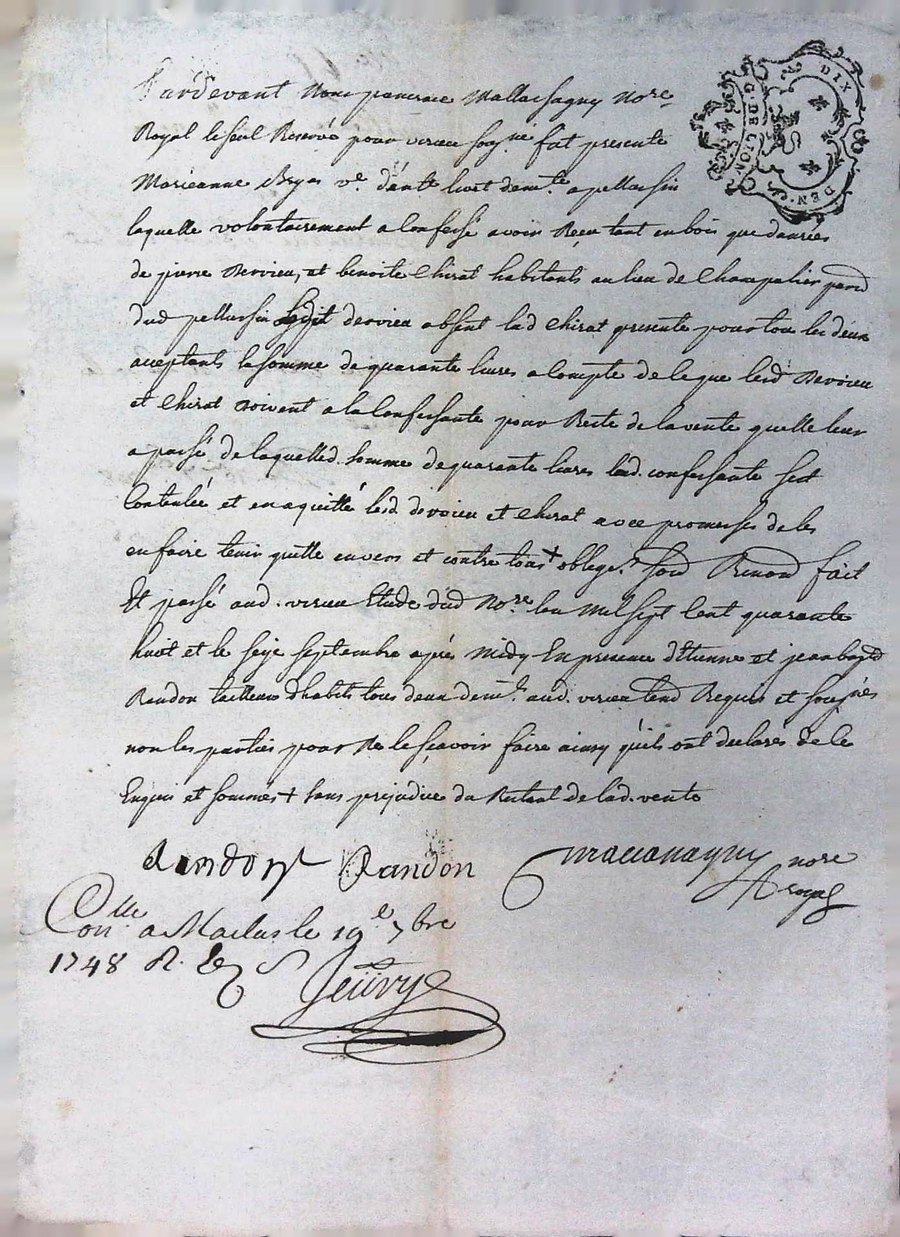 G. DE LION
DIX DEN.
Pardevant Nous Mallassagny Nore
Royal Reservé pour virieu soŋné fut presente
Marieanne ve. demte a pellussin
laquelle volontairement a Confessé avoir Receu tant en bois que danrées
de pierre Dervieu, et benoite Chirat habitants au lieu de Champalier parr
dud pellussin ledit dervieu absent lad Chirat presente pour tous les deux
acceptants la somme de quarante livres a Compte de ce que lesd Dervieu
et Chirat doivent a la Confessante pour Reste de la vente quelle leur
a passé de laquelled. somme de quarante livres lad. confessante sest
Contentée et en a quitté lesd dervieu et Chirat avec promesses de les
en faire tenir quitte envers et contre tous + oblege. fait
Et passé aud. virieu Etude dud Nore lan Mil sept Cent quarante
huit et le seize septembre après Midy En presence d'Etienne et jean bapt
Randon tailleurs d'habits tous deux demt. aud. virieu Requis et
non les parties pour Ne le sçavoir faire ainsy qu'ils ont declarés de ce
Enquis et sommés + sans prejudice du de lad. vente
Randon Randon nore
royal
Conlle a Maclas le 19e 7bre
1748 R.